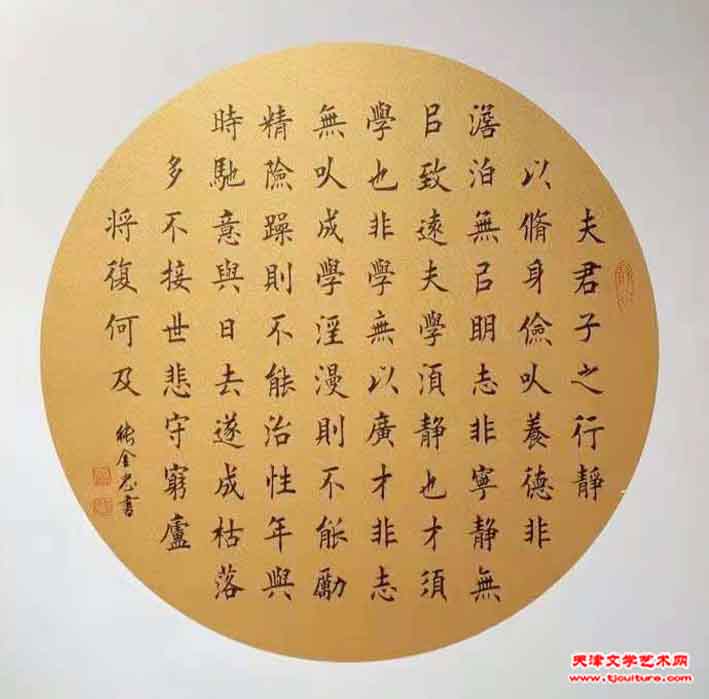 夫君子之行靜
以脩身儉㕥養德非
澹泊無㠯明志非寧靜無
㠯致遠夫學須靜也才須
學也非學無以廣才非志
無㕥成學淫漫則不能勵
精險躁則不能治性年與
時馳意與日去遂成枯落
多不接世悲守窮廬
将復何及
張金忠書
天津文学艺术网
www.tjculture.com